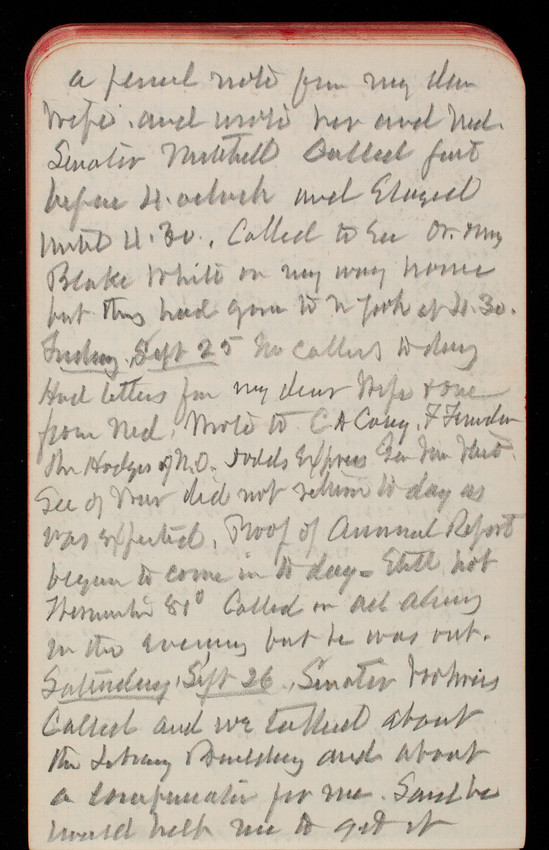 a pencil note from my dear
Wife. and wrote her and Ned.
Senator Mitchell Called just
before 4. oclock and Stayed
until 4.30., Called to See Dr. &
Blake White on my way home
but they had gone to N York at 4.30.
Friday, Sept 25 No Callers to day
Had letters from my dear Wife & one
from Ned. Wrote to C A Casey, F
Mr Hodges of N.O. Dodds Express Gen Van Vliet.
Sec of War did not return to day as
was expected. Proof of Annual Report
began to come in to day = Still hot
Thermometer 81° Called on
in the evening but he was out.
Saturday, Sept 26., Senator
Called and we talked about
the Library Building and about
a for me. Said he
would help me to get it